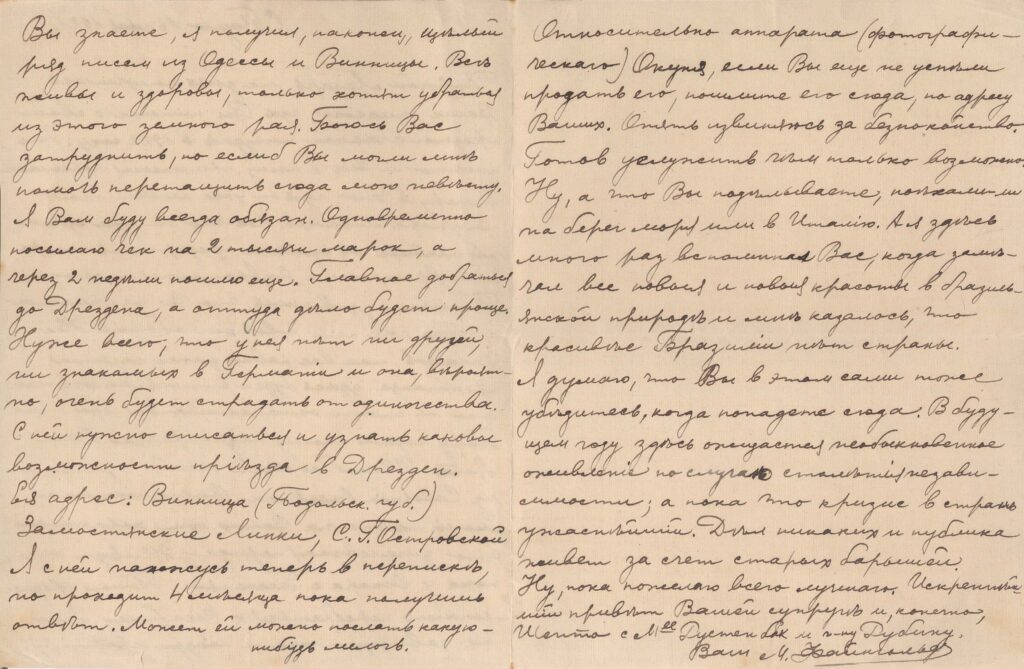 Вы знаете, я получил, наконец, цѣлый
ряд писем из Одессы и Винницы. Всѣ
живы и здоровы, только хотят убраться
из этого земного рая. Боюсь Вас
затруднить, но еслиб Вы могли мнѣ
помочь перетащить сюда мою невѣсту,
я Вам буду всегда обязан. Одновременно
посылаю чек на 2 тысячи марок, а
через 2 недѣли пошлю еще. Главное добраться
до Дрездена, а оттуда дѣло будет проще.
Хуже всего, что у нея нѣт ни друзей,
ни знакомых в Германіи и она, вѣроят-
но, очень будет страдать от одиночества.
С ней нужно списаться и узнать каковы
возможности пріѣзда в Дрезден.
Ея адрес: Винница (Подольск. губ.)
Замостянские Липки, С. Г. Островской
Я с ней нахожусь теперь в перепискѣ,
но проходит 4 мѣсяца пока получишь
отвѣт. Может ей можно послать какую-
нибудь мелочь.
Относительно аппарата (фотографи-
ческаго) Окуня, если Вы еще не успѣли
продать его, пошлите его сюда, по адресу
Ваших. Опять извиняюсь за безпокойство.
Готов услужить чѣм только возможно.
Ну, а что Вы подѣлываете, поѣхали-ли
на берег моря или в Италію. А я здѣсь
много раз вспоминал Вас, когда замѣ-
чал все новыя и новыя красоты в бразиль-
янской природѣ и мнѣ казалось, что
красивѣе Бразиліи нѣт страны.
Я думаю, что Вы в этом сами тоже
убѣдитесь, когда попадете сюда. В буду-
щем году здѣсь ожидается необыкновенное
оживленіе по случаю столѣтія незави-
симости; а пока что кризис в странѣ
ужаснѣйшій. Дѣл никаких и публика
живет за счет старых барышей.
Ну, пока пожелаю всего лучшаго. Искреннѣй-
шій привѣт Вашей супругѣ и, конечно,
с M<sup>ee</sup> и г-ну Дубину.
Ваш М. Файнгольд